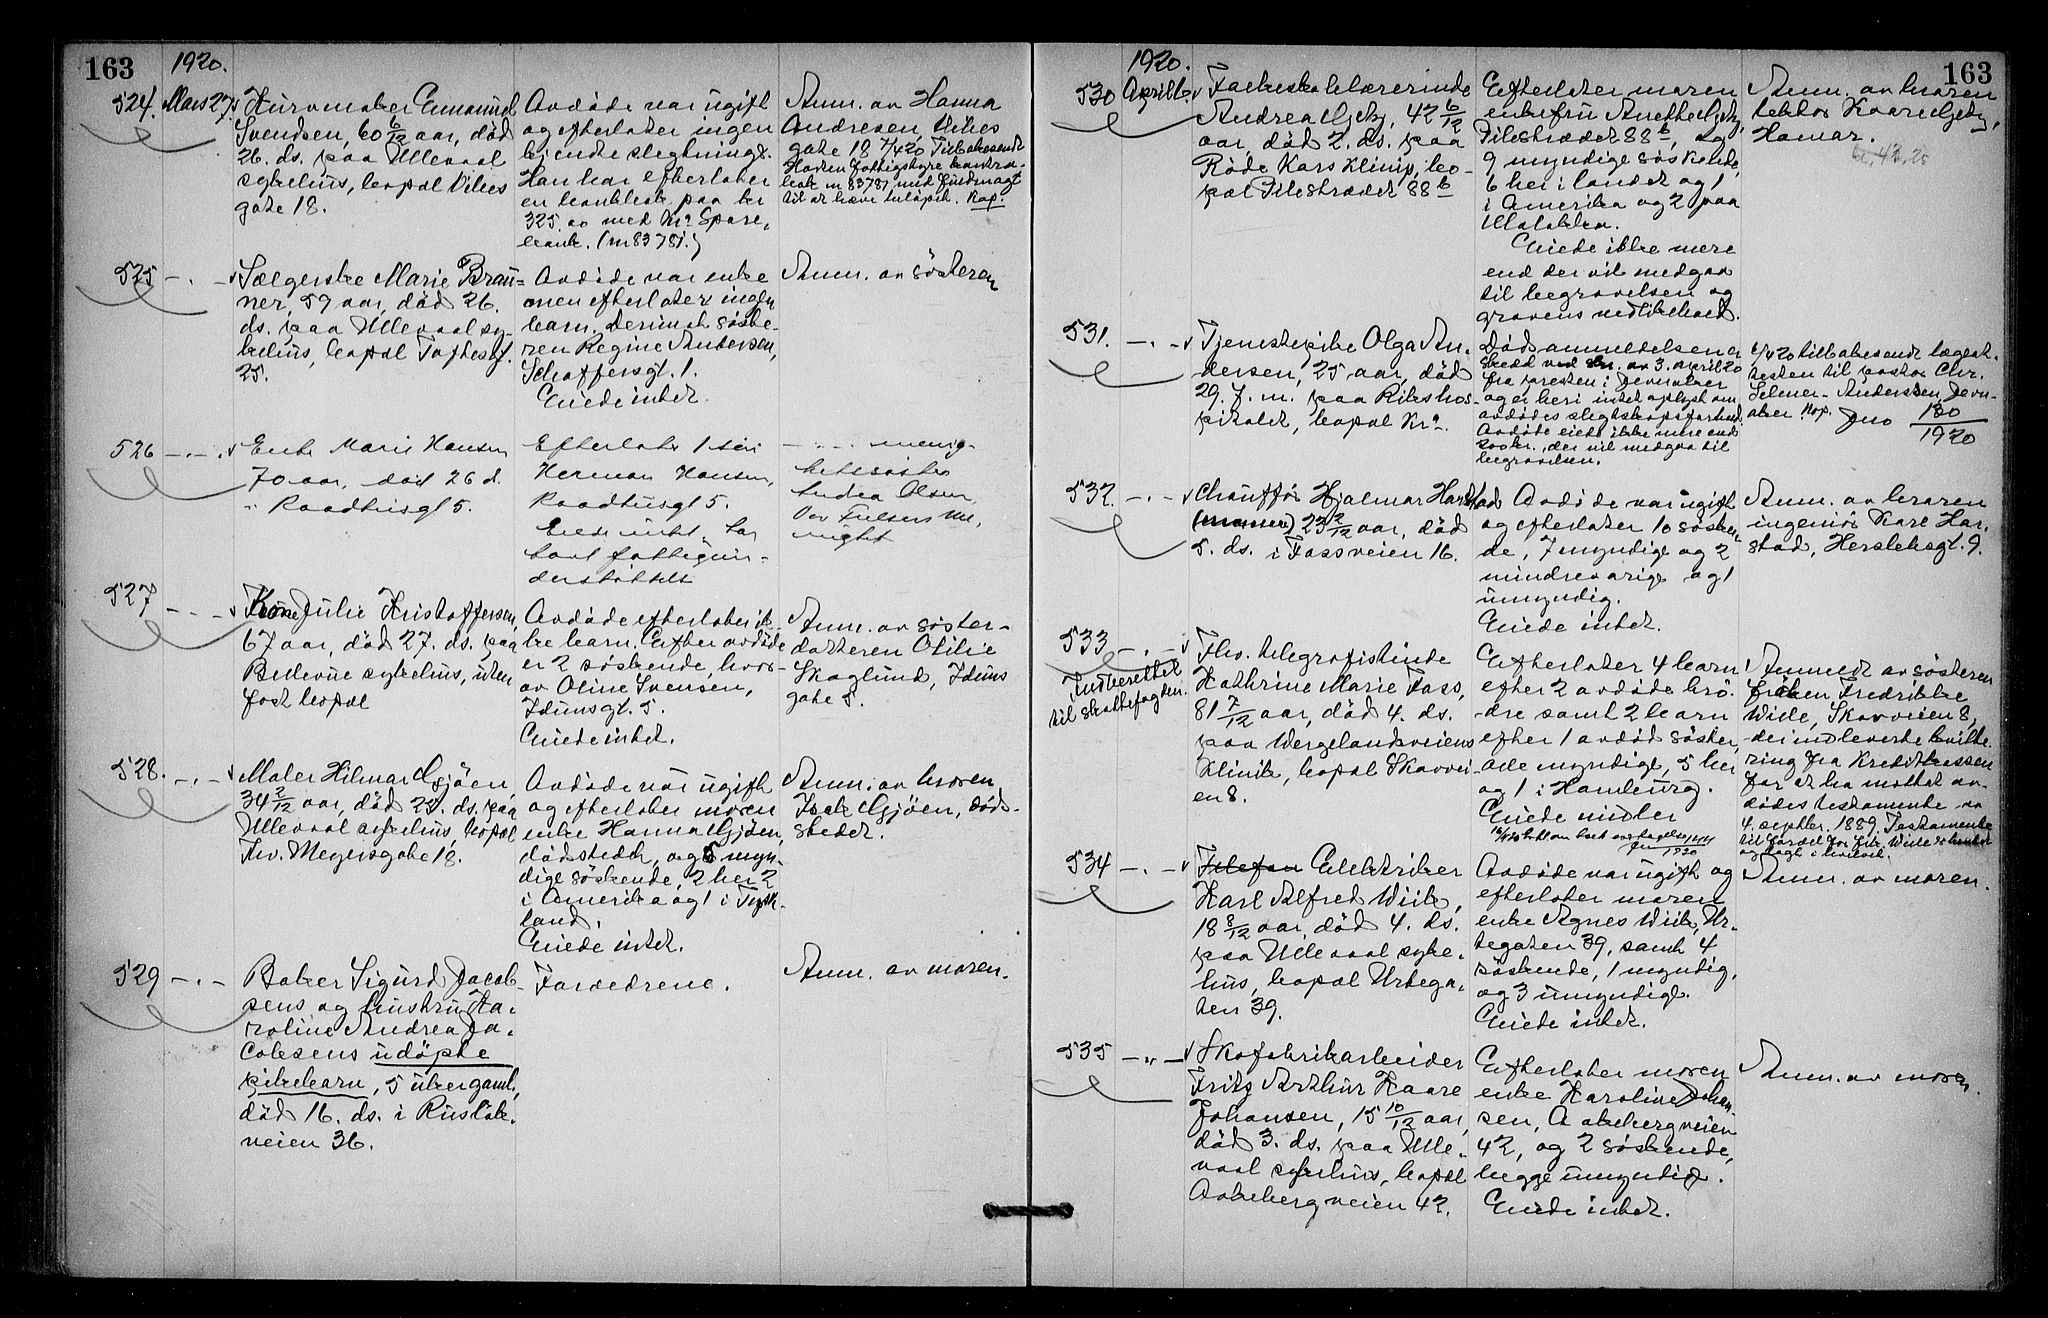 163
1920.
524. Mars 27.
Kurvmaker Emanuel
Svendsen, 60 6/12 aar, död
26. ds. paa Ullevaal
sykehus, bopæl Vibes
gate 18.
Avdöde var ugift
og efterlater ingen
kjendte slegtninge.
Han har efterlatt
en bankbok paa kr
325.00 med Kra Spare-
bank. (nr 83781.)
Anm. av Hanna
Andresen, Vibes
gate 18. 7/4 20 Tilbakesendt
til at hæve beløpet.
525 - . -
Sælgerske Marie Brau-
ner, 59 aar, död 26.
ds. paa Ullevaal sy-
kehus, bopæl Toftesgt.
25.
Avdöde var enke
men efterlater ingen
barn. Derimot söste-
ren Regine Andersen,
Schoffersgt. 1.
Eiede intet.
Anm. av søsteren
526 - . -
Enke Marie Hansen
70 aar, död 26 d.
i Raadhusgt 5.
Efterlater 1 sön
Herman Hansen,
Raadhusgt 5.
Eiede intet, har
havt fattigun-
derstöttelse
- . - menig-
hetssøster
Andrea Olsen
527 - - -
Kone Julie Kristoffersen,
67 aar, död 27. ds. paa
Bellevue sykehus, uten
fast bopæl
Avdöde efterlater ik-
ke barn. Efter avdöde
er 2 söskende, hvor-
av Oline Svensen,
Idunsgt. 5.
Eiede intet.
Anm. av søster-
datteren Otilie
Skoglund, Iduns
gate 5.
528. - . -
Maler Hilmar Gjöen,
34 2/12 aar, död 25. ds. paa
Ullevaal sykehus, bopæl
Thv. Meyersgate 18.
Avdöde var ugift
og efterlater moren
enke Hanna Gjöen,
dödsstedet, og 5 myn-
dige söskende, 2 her 2
i Amerika og 1 i Tysk-
land.
Eiede intet.
Anm. av broren
Isak Gjöen, död-
stedet.
529 - . -
Baker Sigurd Jacob-
sens og hustru Ka-
roline Andrea Ja-
cobsens udöpte
pikebarn, 5 uker gaml,
död 16. ds. i Ruslök-
veien 36.
Forældrene.
Anm. av moren.
163
1920.
530 April 6.
Fachskolelærerinde
Andrea Gjety, 42 6/12
aar, död 2. ds. paa
Röde Kors Klinik, bo-
pæl Pilestrædet 88 b
Efterlater moren
enkefru Anethe Gjety,
Pilestrædet 88 b, og
9 myndige söskende,
6 her i landet og 1
i Amerika og 2 paa
Malakka.
Eiede ikke mere
end der vil medgaa
til begravelsen og
gravens vedlikehold.
Anm. av broren
lektor Kaare Gjety,
Hamar.
531. - . -
Tjenestepike Olga An-
dersen, 25 aar, död
29. f. m. paa Rikshos-
pitalet, bopæl Kra.
Dödsanmeldelsen er
skedd ved skr. av 3. april 20
fra presten i Jevnaker
og er heri intet oplyst om
avdödes slegtskapsforhold.
Avdöde eiet ikke mere end
500 kr., der vil medgaa til
begravelsen.
6/4 20 tilbakesendt lægeat-
testen til pastor Chr.
Selmer-Anderssen, Jevn-
aker. Kop. Jno 130/1920
532. - . -
Chauffør Hjalmar Harstad
23 2/12 aar, död
5. ds. i Fossveien 16.
Avdöde var ugift
og efterlater 10 søsken-
de, 7 myndige og 2
mindreaarige og 1
umyndig.
Eiede intet.
Anm. av broren
ingeniör Kaare Har-
stad, Herslebsgt. 9.
533 - . -
Indberettet
til skattefogden.
Fhv. telegrafistinde
Kathrine Marie Foss,
81 7/12 aar, död 4. ds.
paa Wergelandsveiens
Klinik, bopæl Skovvei-
en 8.
Efterlater 4 barn
efter 2 avdöde brö-
dre samt 2 barn
efter 1 avdöd søster,
alle myndige, 5 her
og 1 i Hamburg.
Eiede midler
Anmeldt av søsteren
fröken Fredrikke
Wide, Skovveien 8,
der indleverte kvitte-
ring fra Kreditkassen
for at ha mottat av-
dödes testamente av
4. septbr. 1889. Testamente
534 - . -
Elektriker
Karl Alfred Wiik,
18 8/12 aar, död 4. ds.
paa Ullevaal syke-
hus, bopæl Urtega-
ten 39.
Avdöde var ugift og
efterlater moren
enke Agnes Wiik, Ur-
tegaten 39, samt 4
söskende, 1 myndig,
og 3 umyndige.
Eiede intet.
Anm. av moren.
535 - „ -
Skofabrikarbeider
Fritz Arthur Kaare
Johansen, 15 10/12 aar,
död 3. ds. paa Ulle-
vaal sykehus, bopæl
Aakebergveien 42.
Efterlater moren
enke Karoline Johan-
sen, Aakebergveien
42, og 2 söskende,
begge umyndige.
Eiede intet.
Anm. av moren.